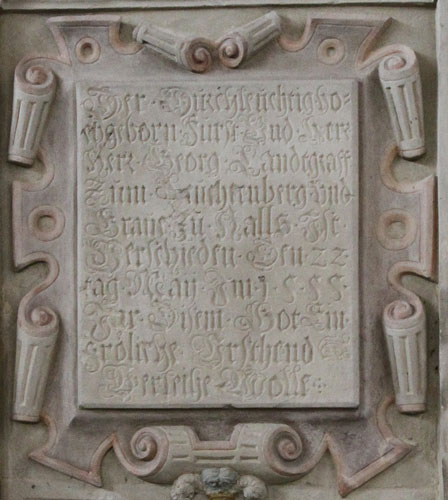 Der · Durchleuchtig ho=
chgeborn · Furst · Und · Herr
Herr · Georg · Landtgraff
Zum · Leuchtenberg · und
Grave · Zu · Halls · Ist
Verschieden · Den · 22
tag · Maii · Im · 1 · 5 · 5 · 5 ·
Jar · Disem · Got · Ein
fröliche · Urstend
Verleihe · Wolle